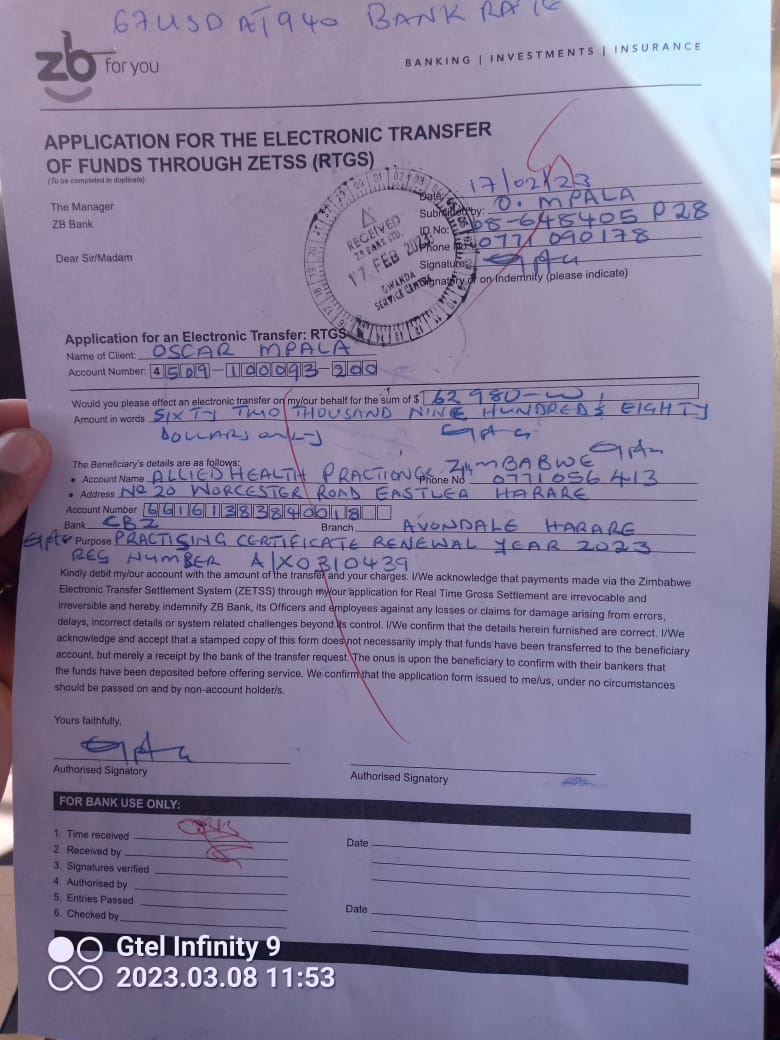 67 USD AT 940 BANK RATE
zb for you
BANKING | INVESTMENTS | INSURANCE
APPLICATION FOR THE ELECTRONIC TRANSFER
OF FUNDS THROUGH ZETSS (RTGS)
(To be completed in duplicate)
The Manager
ZB Bank
Dear Sir/Madam
RECEIVED
ZB BANK LTD.
17 FEB 2023
GWANDA
SERVICE CENTRE
Date: 17/02/23
Submitted by: O. MPALA
ID No: 08-648405 P28
Phone No: 0771 090178
Signature:
Signatory or on Indemnity (please indicate)
Application for an Electronic Transfer: RTGS
Name of Client: OSCAR MPALA
Account Number: 4509-100093-200
Would you please effect an electronic transfer on my/our behalf for the sum of $ 62 980-00
Amount in words SIXTY TWO THOUSAND NINE HUNDRED & EIGHTY
DOLLARS ONLY
The Beneficiary's details are as follows:
• Account Name ALLIED HEALTH PRACTIONS ZIMBABWE
Phone No 0771 056 413
• Address No 20 WORCESTER ROAD EASTLEA HARARE
Account Number 66161383840018
Bank CBZ Branch AVONDALE HARARE
Purpose PRACTISING CERTIFICATE RENEWAL YEAR 2023
REG NUMBER A/X0310439
Kindly debit my/our account with the amount of the transfer and your charges. I/We acknowledge that payments made via the Zimbabwe
Electronic Transfer Settlement System (ZETSS) through my/our application for Real Time Gross Settlement are irrevocable and
irreversible and hereby indemnify ZB Bank, its Officers and employees against any losses or claims for damage arising from errors,
delays, incorrect details or system related challenges beyond its control. I/We confirm that the details herein furnished are correct. I/We
acknowledge and accept that a stamped copy of this form does not necessarily imply that funds have been transferred to the beneficiary
account, but merely a receipt by the bank of the transfer request. The onus is upon the beneficiary to confirm with their bankers that
the funds have been deposited before offering service. We confirm that the application form issued to me/us, under no circumstances
should be passed on and by non-account holder/s.
Yours faithfully,
Authorised Signatory
Authorised Signatory
FOR BANK USE ONLY:
1. Time received
2. Received by
3. Signatures verified
4. Authorised by
5. Entries Passed
6. Checked by
Date
Date
Gtel Infinity 9
2023.03.08 11:53